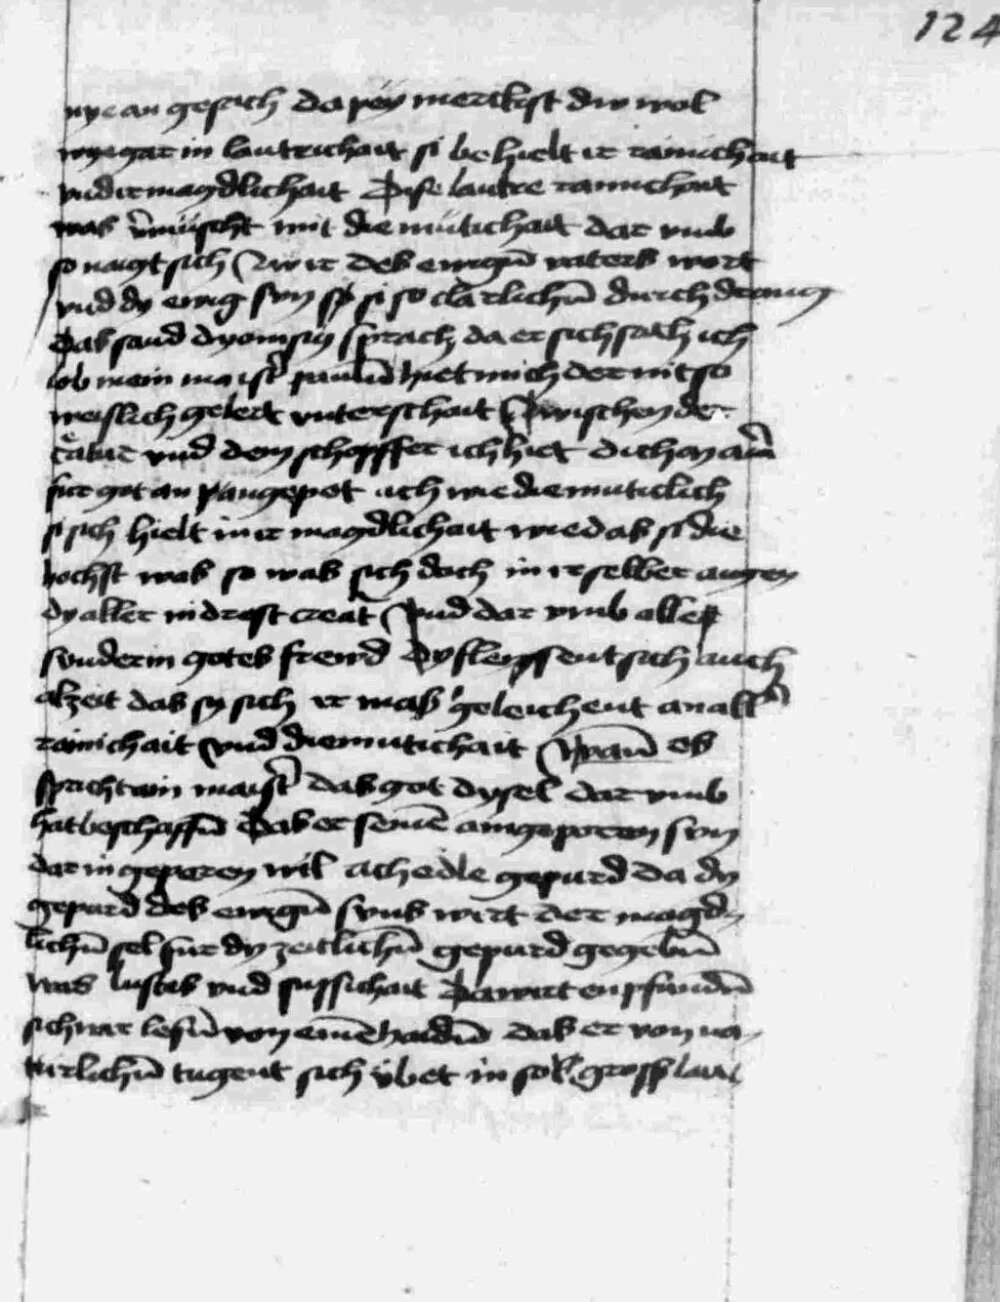 124
nye an gesach da pey merckst du wol
wye gar in lautrichait si behielt ir rainichait
vnd ir magdlichait Dise lautre rainichait
was vermüscht mit diemütichait dar vmb
so naigt sich zw ir des ewigen vaters wort
vnd dy ewig sun so clarlichen durch
das sand dyonisy sprach da er sich sach ich
lob mein maister paulum hiet mich der nit so
weislich gelert vnterschait zwischen der
creatur vnd dem schepffer ich hiet dich
fur got an pangepet ach wie diemuticlich
si sich hielt in ir magdlichait wie das si die
hochst was so was sich doch in ir selber augen
dy aller nidrest creatur vnd dar vmb alle
sunderm gotes frewd dy fleyssent sich auch
alzeit das sy sich ir mass geleichent an aller
rainichait vnd diemutichait Wann es
spricht ain maister das got dy sel dar vmb
hat beschaffen das er seinen aingeporen sun
dar in geperen wil ach edle gepurd da dy
gepurd des ewigen suns wirt der magd-
lichen sel fur dy zeitlichen gepurd gegeben
was lustes vnd sussichait da wirt enpfunden
sich wir lesen von einem haiden das er von na-
turlichen tugent sich übet in sol gross